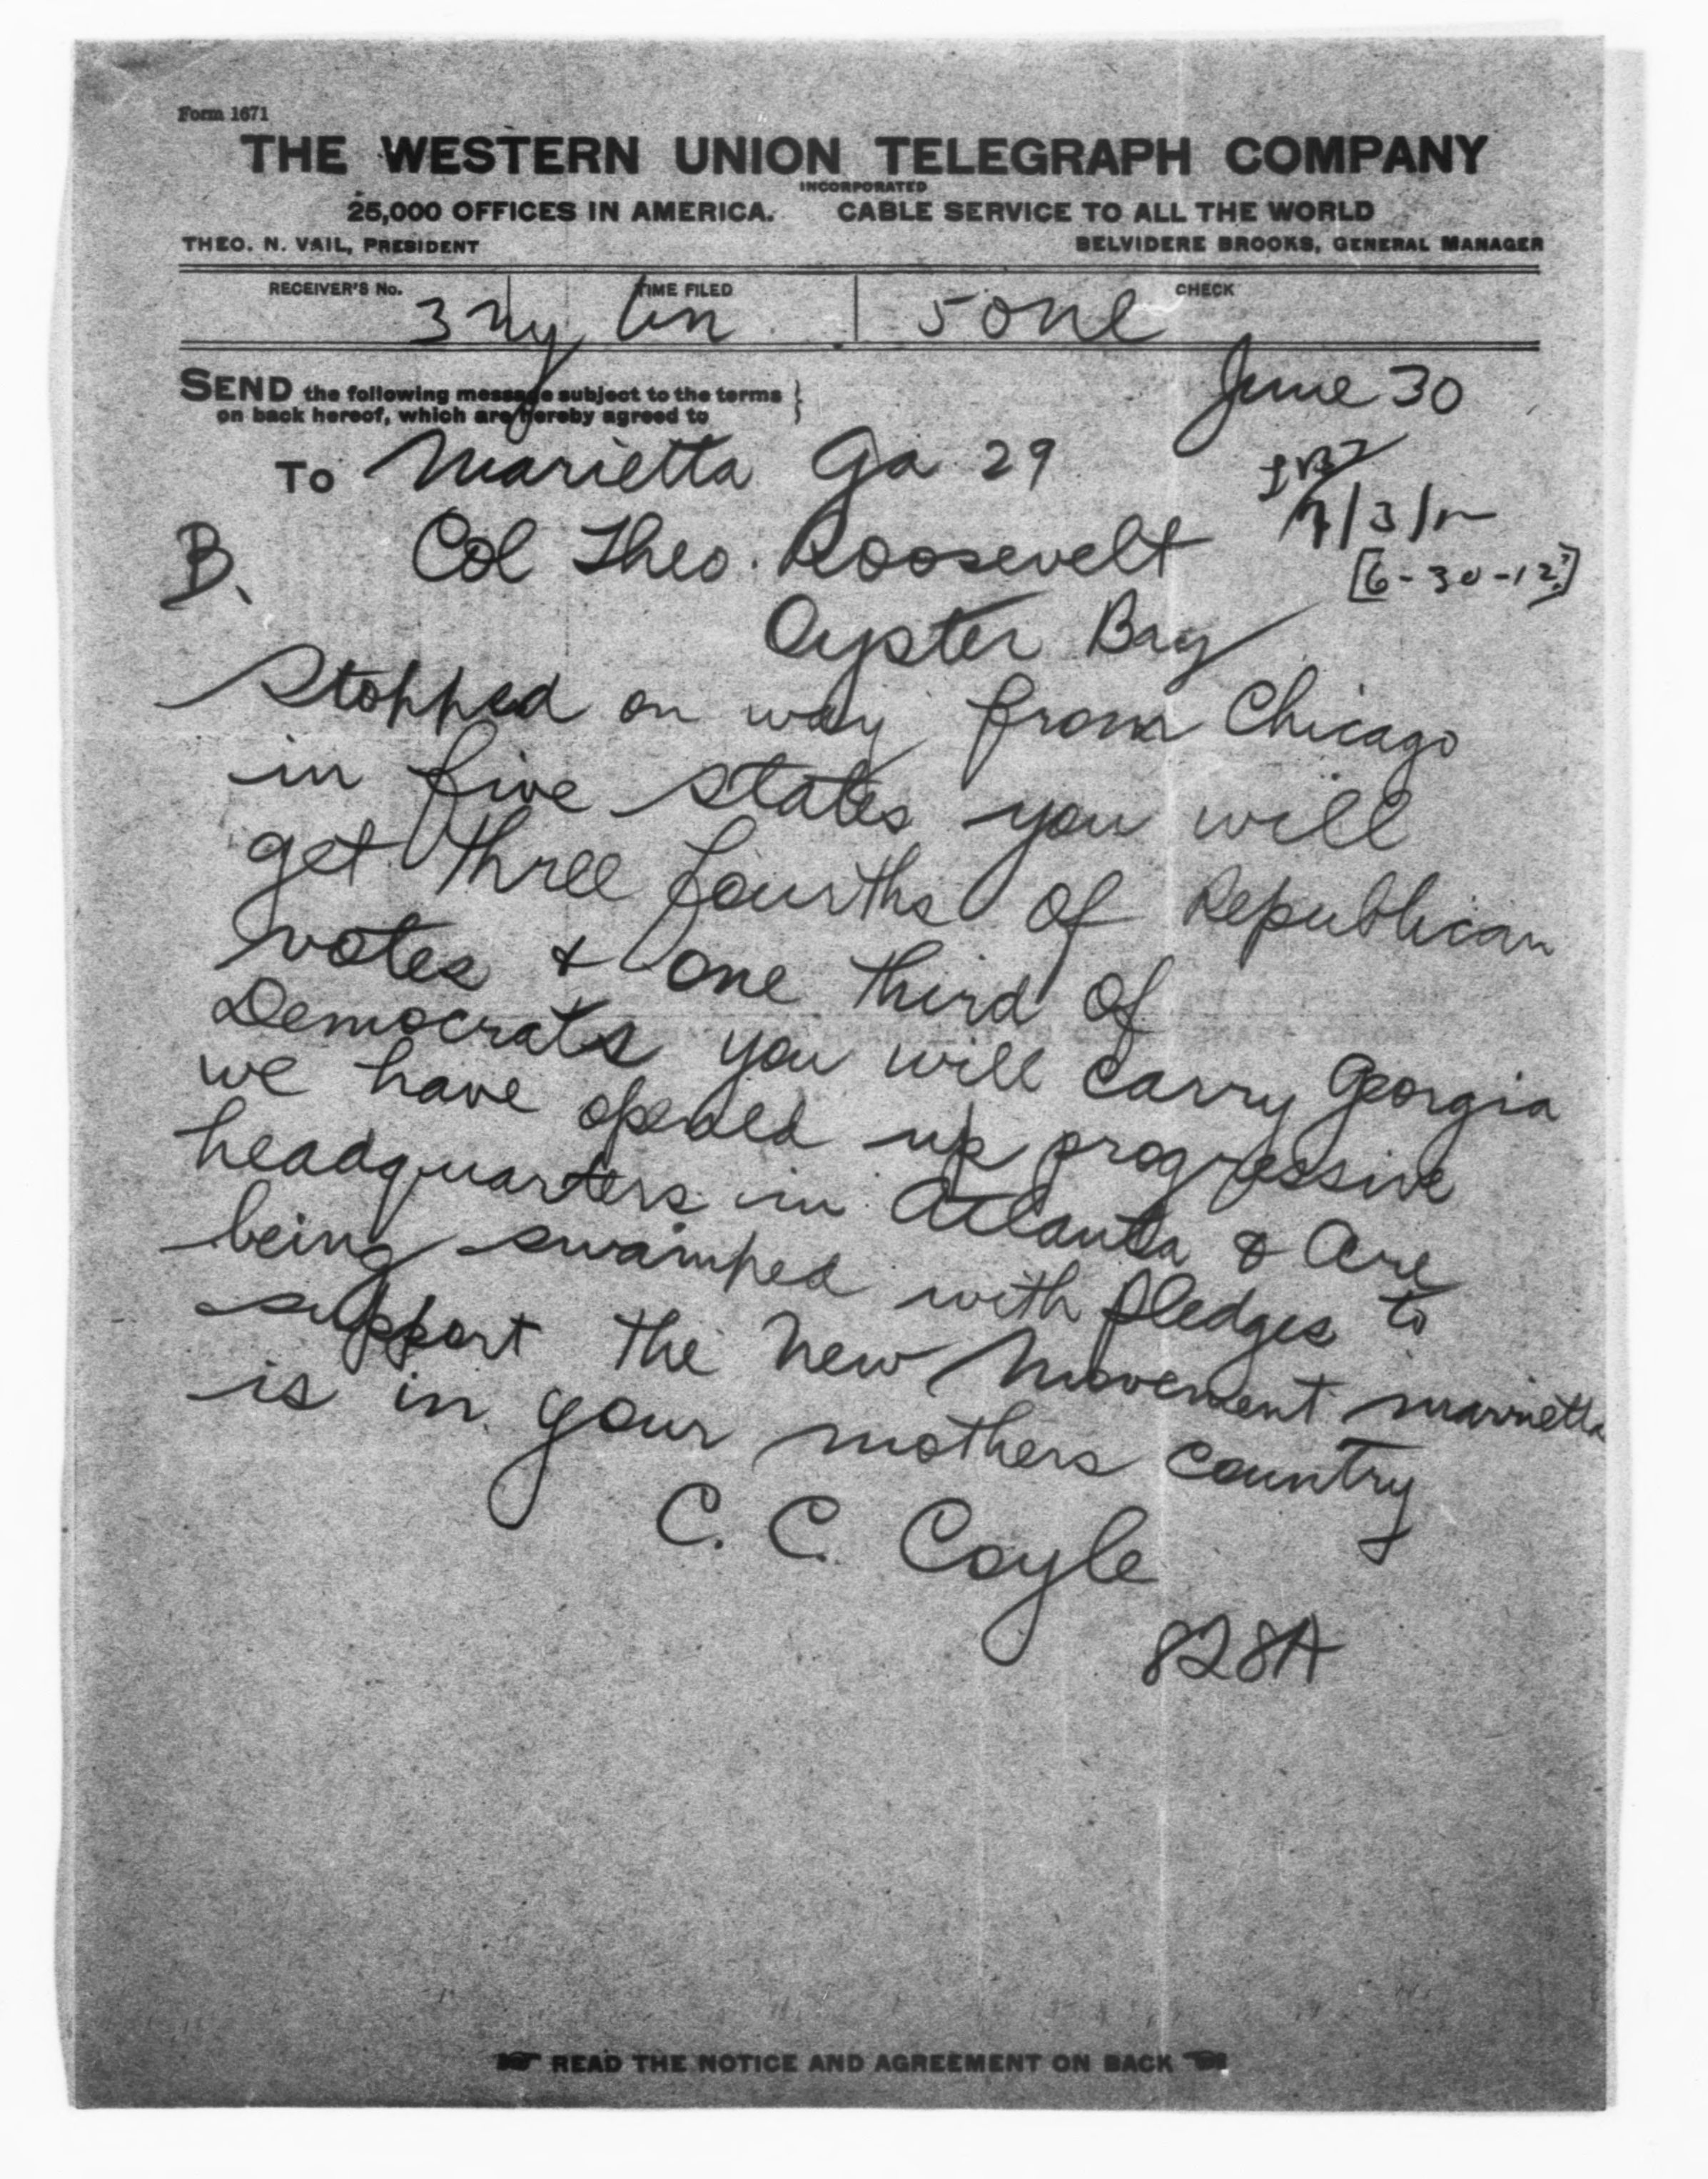 Form 1671
THE WESTERN UNION TELEGRAPH COMPANY
INCORPORATED
25,000 OFFICES IN AMERICA. CABLE SERVICE TO ALL THE WORLD
THEO. N. VAIL, PRESIDENT BELVIDERE BROOKS, GENERAL MANAGER
RECEIVER'S No. TIME FILED CHECK
3 ny 50nl
June 30
SEND the following message subject to the terms
on back hereof, which are hereby agreed to
To Marietta Ga 29
7/3/12
B. Col Theo. Roosevelt
[6-30-12?]
Oyster Bay
Stopped on way from Chicago
in five states you will
get three fourths of Republican
votes & one third of
Democrats you will carry Georgia
we have opened up progressive
headquarters in Atlanta & are
being swamped with pledges to
support the new movement marrietta
is in your mothers country
C. C. Coyle
828A
READ THE NOTICE AND AGREEMENT ON BACK